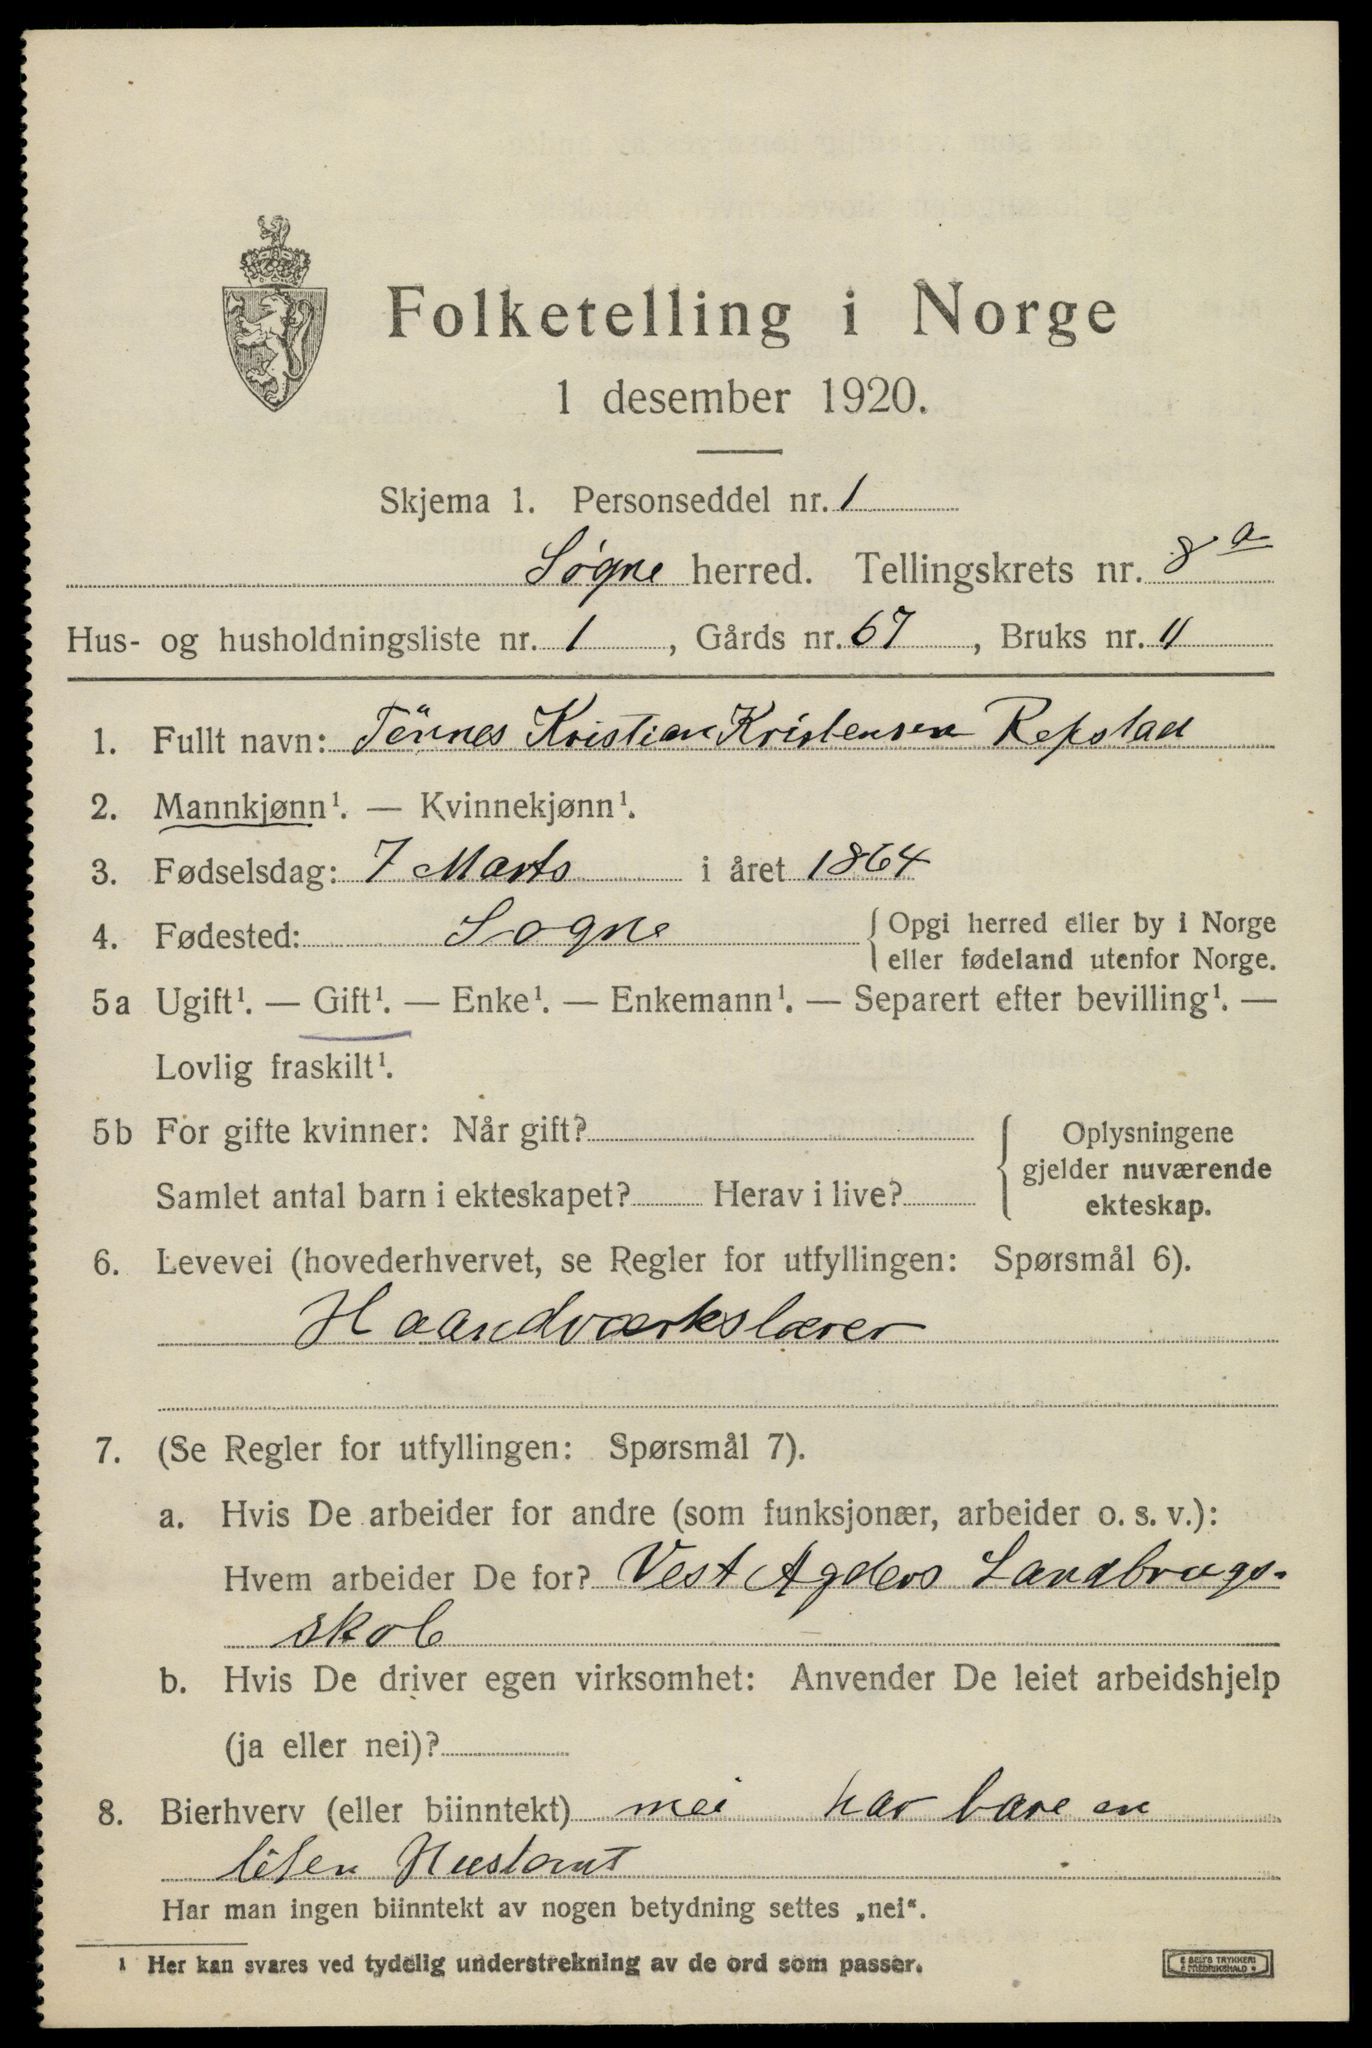 Folketelling i Norge
1 desember 1920.
Skjema 1. Personseddel nr. 1
Søgne herred. Tellingskrets nr. 8 a
Hus- og husholdningsliste nr. 1, Gårds nr. 67, Bruks nr. 11
1. Fullt navn: Tönnes Kristian Kristensen Repstad
2. Mannkjønn¹. — Kvinnekjønn¹.
3. Fødselsdag: 7 Marts i året 1864
4. Fødested: Sogne { Opgi herred eller by i Norge
eller fødeland utenfor Norge.
5a Ugift¹. — Gift¹. — Enke¹. — Enkemann¹. — Separert efter bevilling¹. —
Lovlig fraskilt¹.
5b For gifte kvinner: Når gift? { Oplysningene
gjelder nuværende
Samlet antal barn i ekteskapet? Herav i live? ekteskap.
6. Levevei (hovederhvervet, se Regler for utfyllingen: Spørsmål 6).
Haandværkslærer
7. (Se Regler for utfyllingen: Spørsmål 7).
a. Hvis De arbeider for andre (som funksjonær, arbeider o. s. v.):
Hvem arbeider De for? Vest Agders Landbrugs-
skole
b. Hvis De driver egen virksomhet: Anvender De leiet arbeidshjelp
(ja eller nei)?
8. Bierhverv (eller biinntekt) nei har bare en
liten Hustomt
Har man ingen biinntekt av nogen betydning settes „nei“.
¹ Her kan svares ved tydelig understrekning av de ord som passer.
E SEM'S TRYKKERI
FREDRIKSHALD